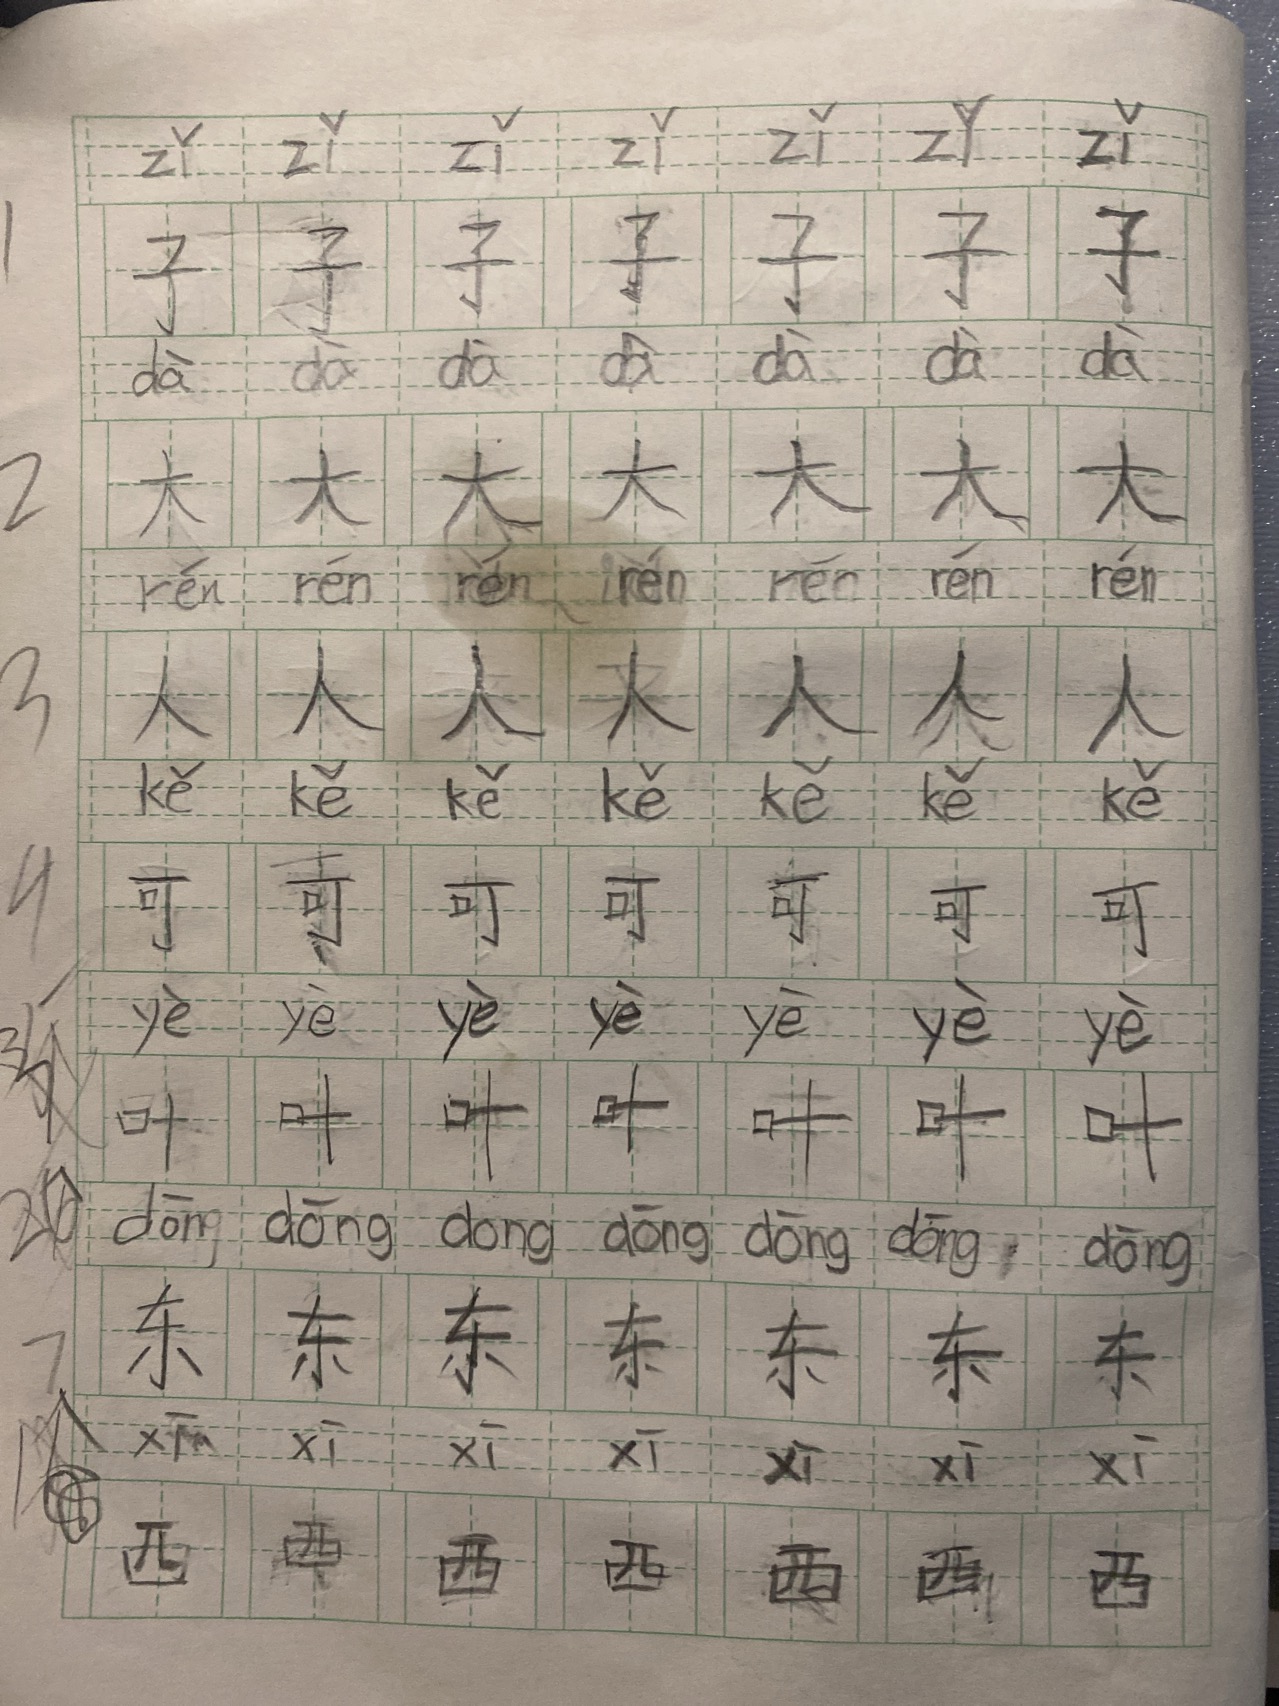 zǐ zǐ zǐ zǐ zǐ zǐ zǐ
1 子 子 子 子 子 子 子
dà dà dà dà dà dà dà
2 大 大 大 大 大 大 大
rén rén rén rén rén rén rén
3 人 人 人 人 人 人 人
kě kě kě kě kě kě kě
4 可 可 可 可 可 可 可
yè yè yè yè yè yè yè
叶 叶 叶 叶 叶 叶 叶
dōng dōng dong dōng dōng dōng dōng
7 东 东 东 东 东 东 东
xī xī xī xī xī xī xī
西 西 西 西 西 西 西